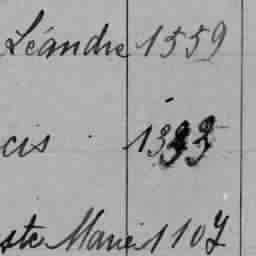 Léandre 1559
cis
ste Marie 1107